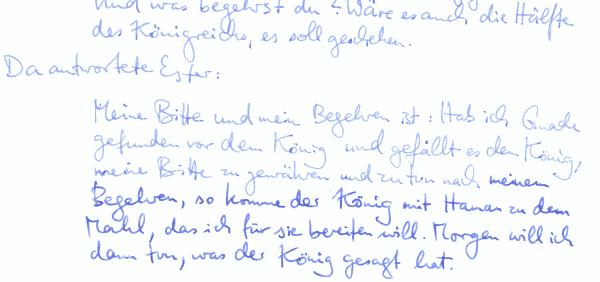 und was begehrst du? Wäre es auch die Hälfte
des Königreichs, es soll geschehen.
Da antwortete Ester:
Meine Bitte und mein Begehren ist: Hab ich Gnade
gefunden vor dem König und gefällt es dem König,
meine Bitte zu gewähren und zu tun nach meinem
Begehren, so komme der König mit Haman zu dem
Mahl, das ich für sie bereiten will. Morgen will ich
dann tun, was der König gesagt hat.